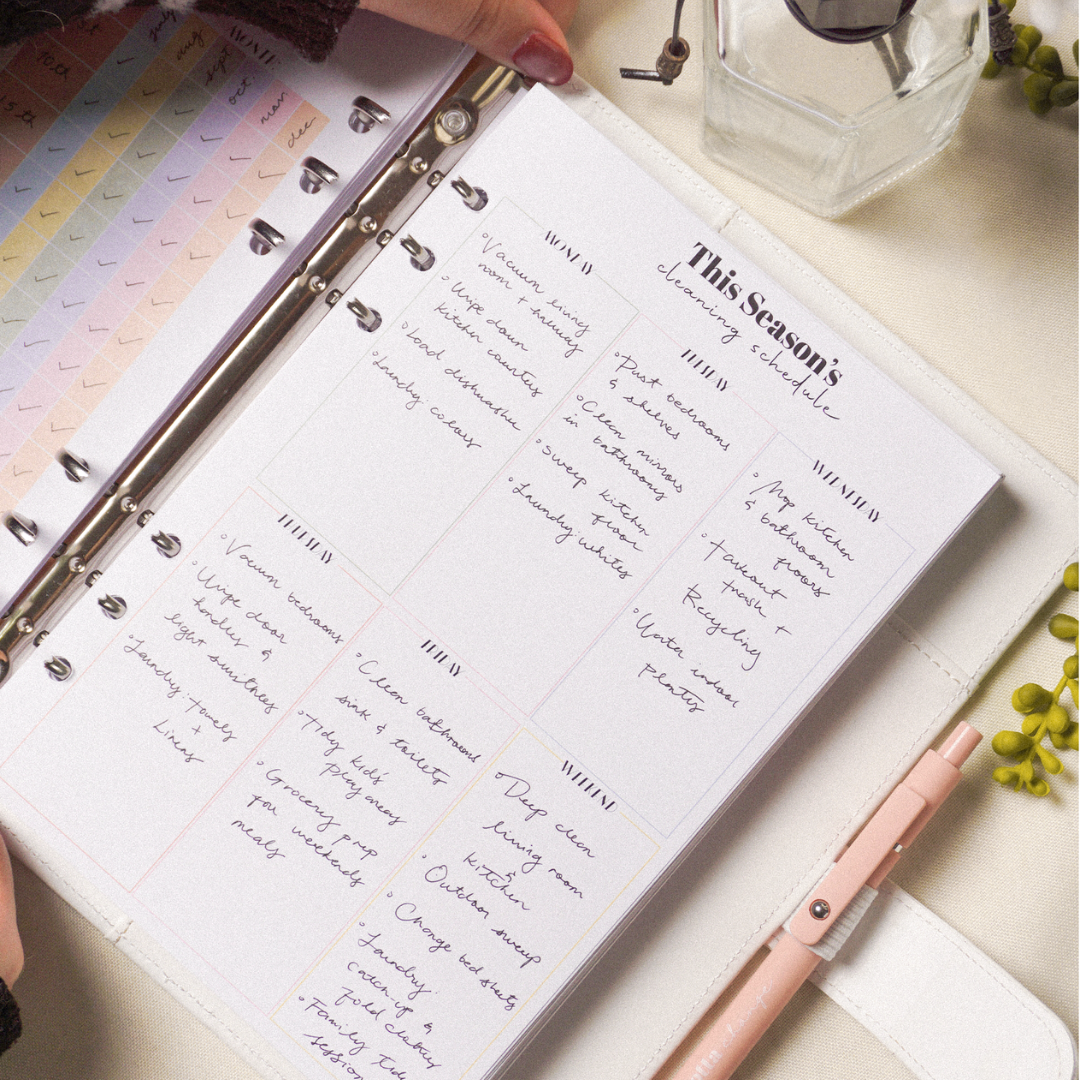 10th
15th
july
aug
sept
oct
nov
dec
MONTH
This Season's
cleaning schedule
MONDAY
Vacuum living
room + hallway
Wipe down
kitchen counters
Load dishwasher
Laundry: colors
TUESDAY
Dust bedrooms
& shelves
Clean mirrors
in bathrooms
Sweep kitchen
floor
Laundry: whites
WEDNESDAY
Mop kitchen
& bathroom
floors
Takeout
trash +
Recycling
Water indoor
plants
THURSDAY
Vacuum bedrooms
Wipe door
handles &
light switches
Laundry: towels
+
Linens
FRIDAY
Clean bathrooms
sink & toilets
Tidy kids'
play areas
Grocery prep
for weekends
meals
WEEKEND
Deep clean
living room
&
kitchen
Outdoor sweep
Change bed sheets
Laundry:
catch-up &
fold clothes
Family tidy
session